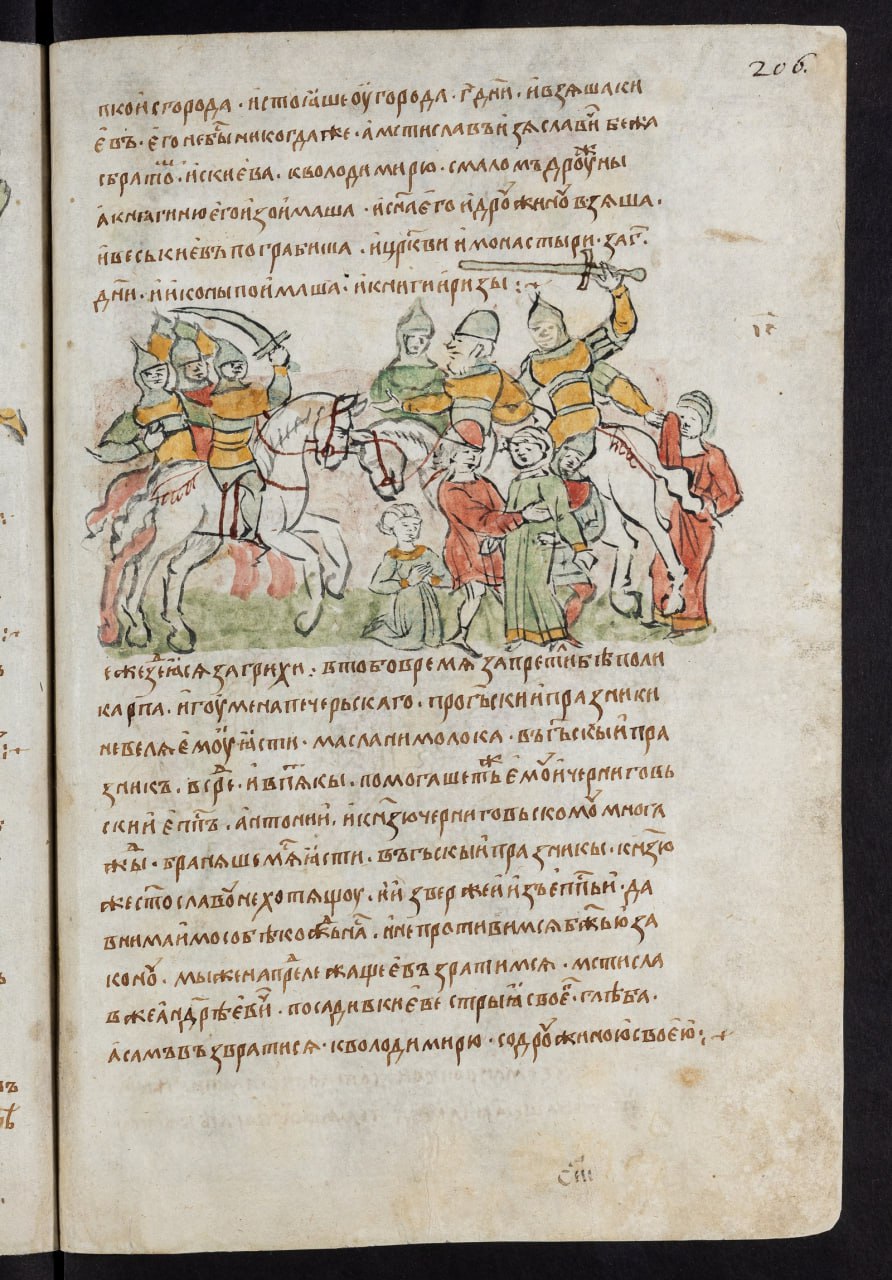 206.
пкоисгорода · истоꙗшеоугорода · г҃днӥ · ивзѧшаки
євъ · єгонебꙑ́никогдаже · амстиславъизѧславй бежа
сбрато · искиєва · кволодимирю · смаломъдроуны
акнѧгинюєгоизоимаша · иснаєго идроужиноу взѧша ·
ивеськиєвъпограбиша · ицркви имонастыри · заг҃ ·
днӥ ·ииконыпоимаша · икнигииризы :~
ежезасязагрихи : втобовремѧ запретибѣполи
карпа · игоуменапечерьскаго · прогс̑кииπразники
невелѧємоуꙗсти · масланимолока · въгс̑кыипра
зникъ · всре · ивпѧкы · помогашеть ємоуичерниговь
ский єпп҃ъ · антоний · икнзючерниговьскомоу многа
жы · бранѧшемꙗсти · въгьскыипразникы · кнзю
жестославоунехотѧщоу · ии звержеиизъєпп҃ьи · да
внимаимособѣкождьна · инепротивимсѧбжьюза
коноу · мыженапрележащеєвъзратимсѧ · мстисла
вжеандрѣєвй · посадивкиєве стрыꙗсвоє · глѣба ·
асамъвъзвратисѧ · кволодимирю · содроужиноюсвоєю :~